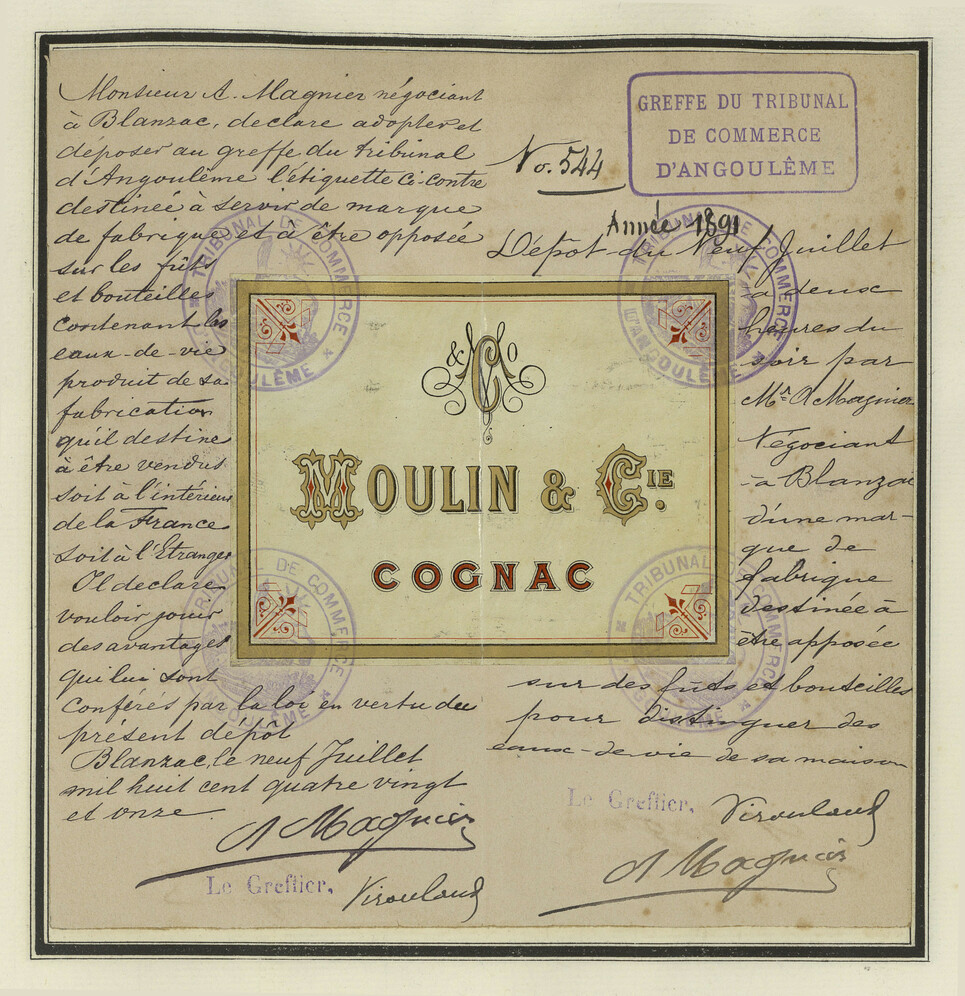 Monsieur A. Magnier négociant
à Blanzac, declare adopter et
déposer au greffe du tribunal
d'Angoulême l'étiquette ci-contre
destinée à servir de marque
de fabrique et à être opposée
sur les fûts
et bouteilles
contenant les
eaux-de-vie
produit de sa
fabrication
qu'il destine
à être vendus
soit à l'intérieur
de la France
soit à l'Etranger
Il declare
vouloir jouir
des avantages
qui lui sont
conférés par la loi en vertu du
présent dépôt
Blanzac, le neuf Juillet
mil huit cent quatre vingt
et onze.
A Magnier
Le Greffier,
Viroulaud
GREFFE DU TRIBUNAL
DE COMMERCE
D'ANGOULÊME
No. 544
Année 1891
Dépôt du Neuf Juillet
à deux
heures du
soir par
Mr. A Magnier
Négociant
à Blanzac
d'une mar-
que de
fabrique
destinée à
être apposée
sur des fûts et bouteilles
pour distinguer des
eaux-de-vie de sa maison
Le Greffier,
Viroulaud
A Magnier
&Co
MOULIN & CIE.
COGNAC
TRIBUNAL DE COMMERCE
D'ANGOULÊME
TRIBUNAL DE COMMERCE
D'ANGOULÊME
TRIBUNAL DE COMMERCE
D'ANGOULÊME
TRIBUNAL DE COMMERCE
D'ANGOULÊME